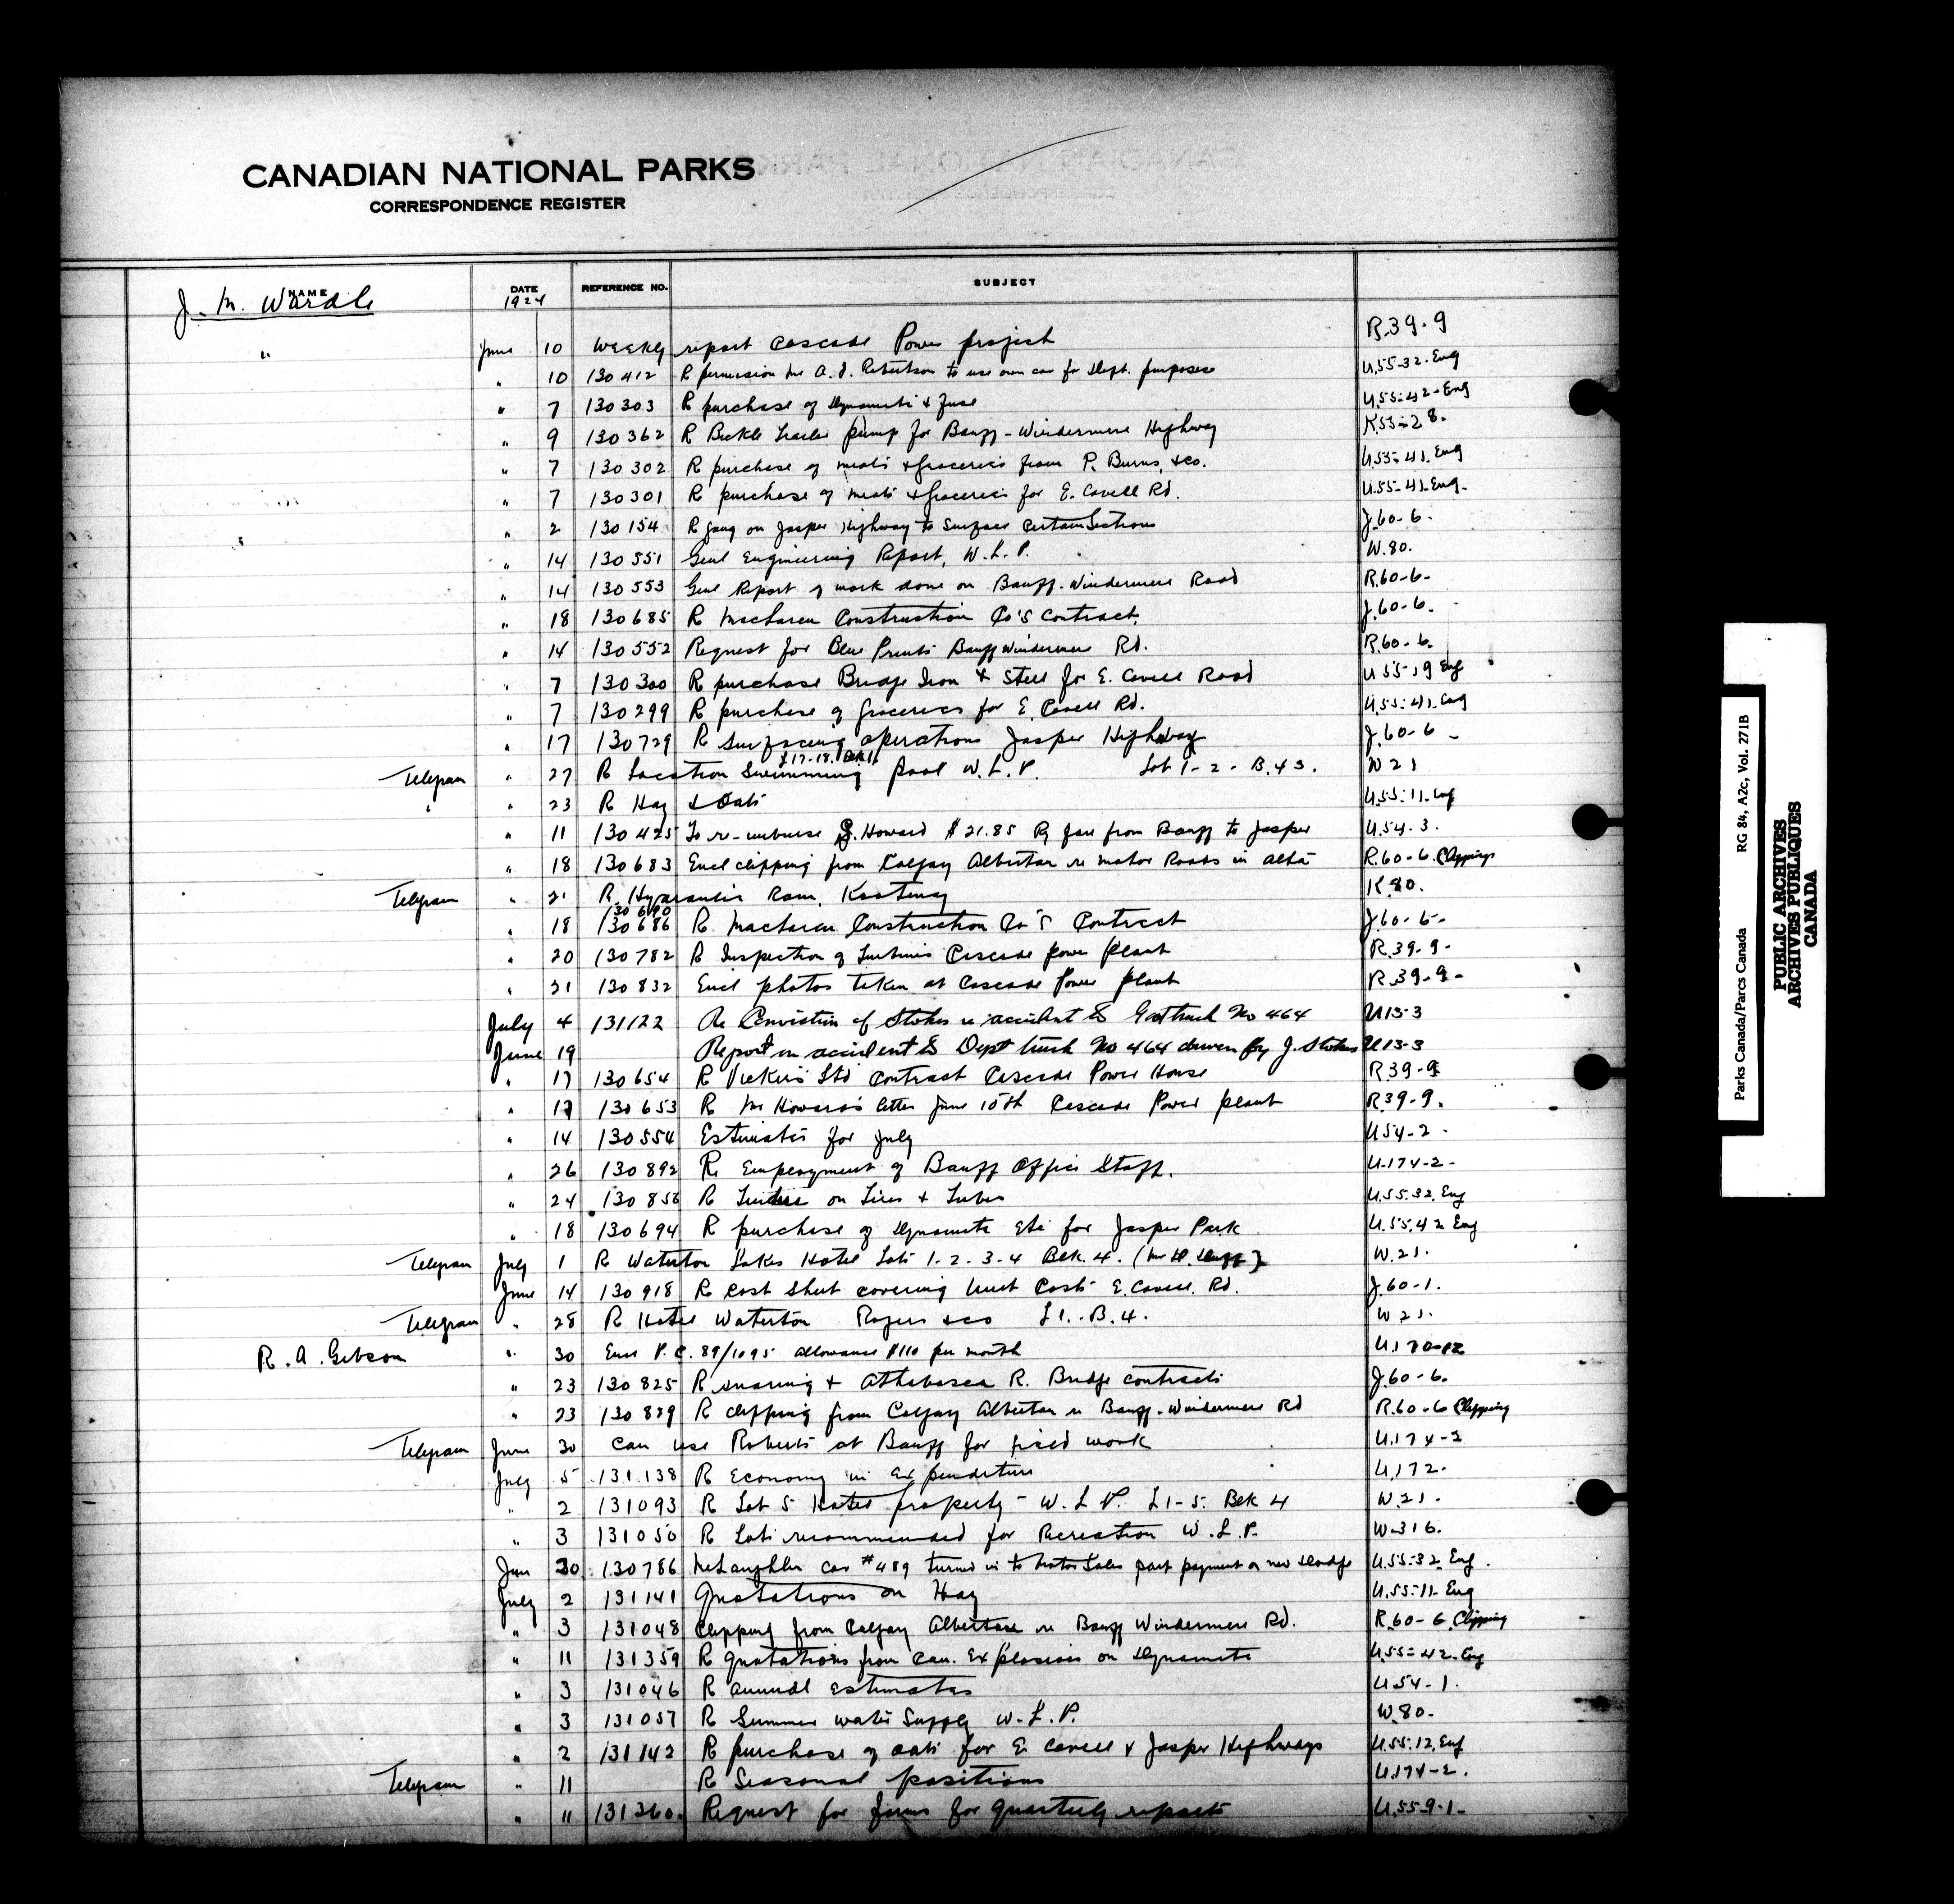 CANADIAN NATIONAL PARKS
CORRESPONDENCE REGISTER
NAME DATE REFERENCE NO. SUBJECT
J. M. Wardle 1924
" June 10 Weekly report Cascade Power project R.39-9
" 10 130412 R permission Mr A. J. Robertson to use own car for Dept. purposes U.55-32-Eng
" 7 130303 R purchase of Dynamite & Fuse U.55-42-Eng
" 9 130362 R Bickle Trailer pump for Banff-Windermere Highway K.55-28.
" 7 130302 R purchase of meats & Groceries from P. Burns, & co. U.55-41.Eng
" 7 130301 R purchase of meats & Groceries for E. Cavell Rd. U.55-41-Eng-
" 2 130154 R gang on Jasper Highway to surface certain sections J.60-6.
" 14 130551 Genl Engineering Report, W.L.P. W.80.
" 14 130553 Genl Report of work done on Banff-Windermere Road R.60-6-
" 18 130685 R MacLaren Construction Co's Contract. J.60-6.
" 14 130552 Request for Blue Prints Banff Windermere Rd. R.60-6.
" 7 130300 R purchase Bridge Iron & Steel for E. Cavell Road U 55-19 Eng
" 7 130299 R purchase of Groceries for E. Cavell Rd. U.55-41-Eng
" 17 130729 R Surfacing operations Jasper Highway J.60-6 -
L17-18. Bk 11
Telegram " 27 R Location Swimming pool W.L.P. Lot 1-2-B.43. W 21
" " 23 R Hay & Oats U.55-11.Eng
" 11 130425 To re-imburse J. Howard $21.85 Ry fare from Banff to Jasper U.54-3.
" 18 130683 Encl clipping from Calgary Albertan re Motor Roads in Alta R.60-6.Clippings
Telegram " 21 R. Hydraulic Ram, Kootenay K.80.
130690
" 18 130686 R. MacLaren Construction Co's Contract J.60-6-
" 20 130782 R Inspection of Turbines Cascade Power plant R.39-9-
" 21 130832 Encl photos taken at Cascade Power plant R.39-9-
July 4 131122 Re Conviction of Stokes re accident to Govt truck No 464 U13-3
June 19 Report on accident to Dept truck No 464 driven by J. Stokes U13-3
" 17 130654 R Vickers Ltd Contract Cascade Power House R.39-9
" 17 130653 R Mr Howard's letter June 10th Cascade Power plant R.39-9.
" 14 130554 Estimates for July U.54-2.
" 26 130892 R. Employment of Banff Office Staff. U-174-2-
" 24 130856 R Tenders on Tires & Tubes U.55.32.Eng
" 18 130694 R purchase of Dynamite Etc for Jasper Park U.55.42 Eng
Telegram July 1 R Waterton Lakes Hotel Lots 1-2-3-4 Blk. 4. W.21.
June 14 130918 R cost sheet covering Unit Costs E. Cavell Rd. J.60-1.
Telegram " 28 R Hotel Waterton Rogers & co L1..B.4. W 21.
R. A. Gibson " 30 Encl P.C. 89/1095 allowance $110 per month U.170-12
" 23 130825 R Snaring & Athabasca R. Bridge contracts J.60-6.
" 23 130829 R clipping from Calgary Albertan re Banff-Windermere Rd R.60-6 Clipping
Telegram June 30 Can use Roberts at Banff for field work U.174-2
July 5 131138 R Economy in Expenditure U.172-
" 2 131093 R Lot 5 Hotel property - W.L.P. L1-5. Blk 4 W.21.
" 3 131050 R Lots recommended for Recreation W.L.P. W-316.
June 30 130786 McLaughlin Car #489 turned in to Motor Sales part payment on new Dodge U.55-32 Eng.
July 2 131141 Quotations on Hay U.55-11-Eng
" 3 131048 Clipping from Calgary Albertan re Banff Windermere Rd. R.60-6.Clipping
" 11 131359 R quotations from Can. Explosives on Dynamite U.55-42-Eng
" 3 131046 R annual estimates U.54-1.
" 3 131057 R Summer water Supply W.L.P. W.80-
" 2 131142 R purchase of oats for E. Cavell & Jasper Highways U.55.12.Eng
Telegram " 11 R Seasonal positions U.174-2.
" 11 131360. Request for forms for quarterly reports U.55-9-1-
Parks Canada/Parcs Canada RG 84, A2c, Vol. 271B
PUBLIC ARCHIVES
ARCHIVES PUBLIQUES
CANADA